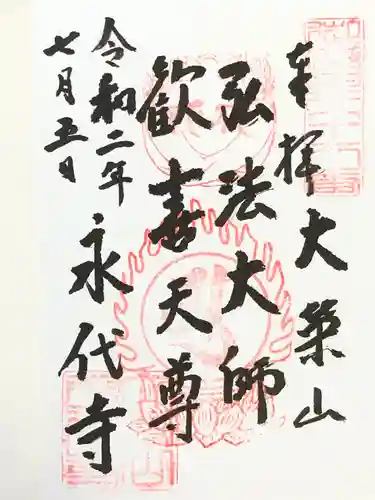 奉拝 大築山
弘法大師
歓喜天尊
令和二年 永代寺
七月五日